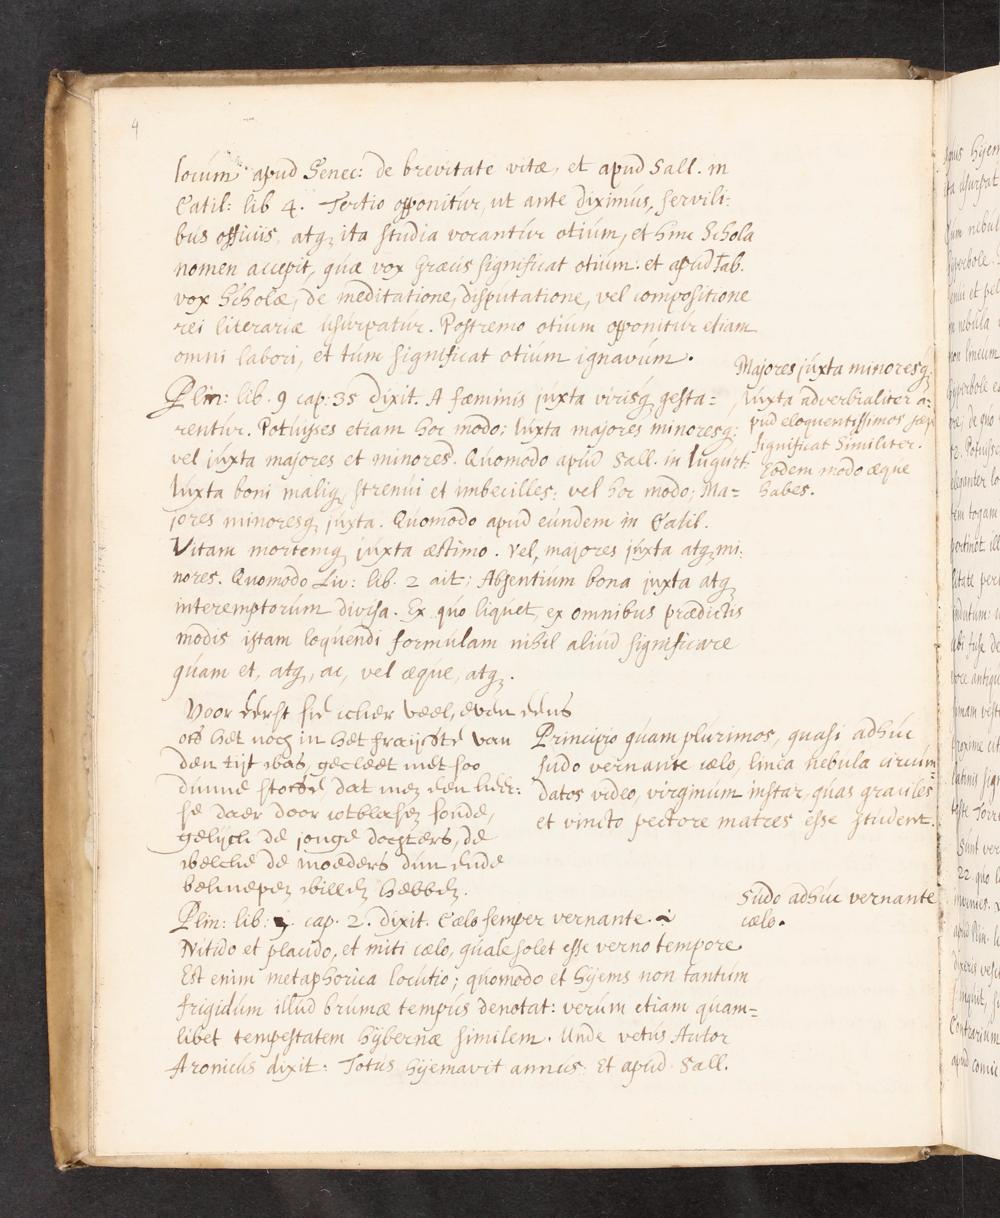 4
locum apud Senec: de brevitate vitæ, et apud Sall. in
Catil: lib 4. Tertio opponitur, ut ante diximus, servili:
bus officiis, atq; ita studia vocantur otium, et hinc Schola
nomen accepit, quæ vox Græcis significat otium: et apud Fab.
vox Scholæ, de meditatione, disputatione, vel compositione
rei literariæ usurpatur. Postremo otium opponitur etiam
omni labori, et tum significat otium ignavum.
Plin: lib. 9 cap: 35 dixit. A fæminis juxta virisq; gesta=
rentur. Potuisses etiam hoc modo; Iuxta majores minoresq;
vel juxta majores et minores. Quomodo apud Sall. in Iugurt.
Iuxta boni maliq; strenui et imbecilles: vel hoc modo; Ma=
jores minoresq; juxta. Quomodo apud eundem in Catil.
Vitam mortemq; juxta æstimo. Vel, majores juxta atq; mi:
nores. Quomodo Liv: lib. 2 ait; Absentium bona juxta atq;
interemptorum divisa. Ex quo liquet, ex omnibus prædictis
modis istam loquendi formulam nihil aliud significare
quam et, atq;, ac, vel æque, atq;.
Majores juxta minoresq;
Iuxta adverbialiter a=
pud eloquentissimos sæpe
significat Similiter.
Eodem modo æque
habes.
Voor eerst sie icker veel, even eens
ofs het noch in het fraijste van
den tijt was, gecleet met soo
dunne stoffe, dat men een luch:
se daer door wtblasen soude,
gelijck de jonge dochters, de
welcke de moeders dun ende
bellmepen willen hebben.
Principio quam plurimos, quasi adhuc
sudo vernante cælo, linea nebula circum=
datos video, virginum instar, quas graciles
et vincto pectore matres esse student.
Plin: lib: 2. cap. 2. dixit. Cælo semper vernante. i
Nitido et placido, et miti cælo, quale solet esse verno tempore
Est enim metaphorica locutio; quomodo et hyems non tantum
frigidum illud brumæ tempus denotat: verum etiam quam=
libet tempestatem hybernæ similem. Unde vetus Autor
Aronicus dixit: Totus hyemavit annus. Et apud Sall.
Sudo adhuc vernante
cælo.